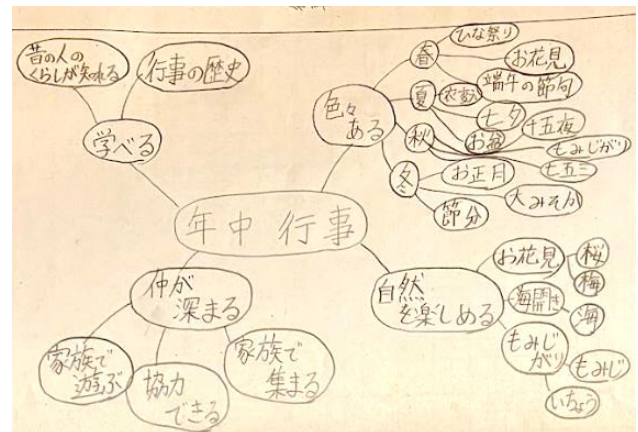 昔の人の
くらしが知れる
行事の歴史
学べる
年中 行事
色々
ある
春
ひな祭り
お花見
端午の節句
夏
衣がえ
七夕
お盆
秋
十五夜
もみじがり
七五三
冬
お正月
大みそか
節分
自然
を楽しめる
お花見
桜
梅
海開き
海
もみじ
がり
もみじ
いちょう
仲が
深まる
家族で
遊ぶ
協力
できる
家族で
集まる